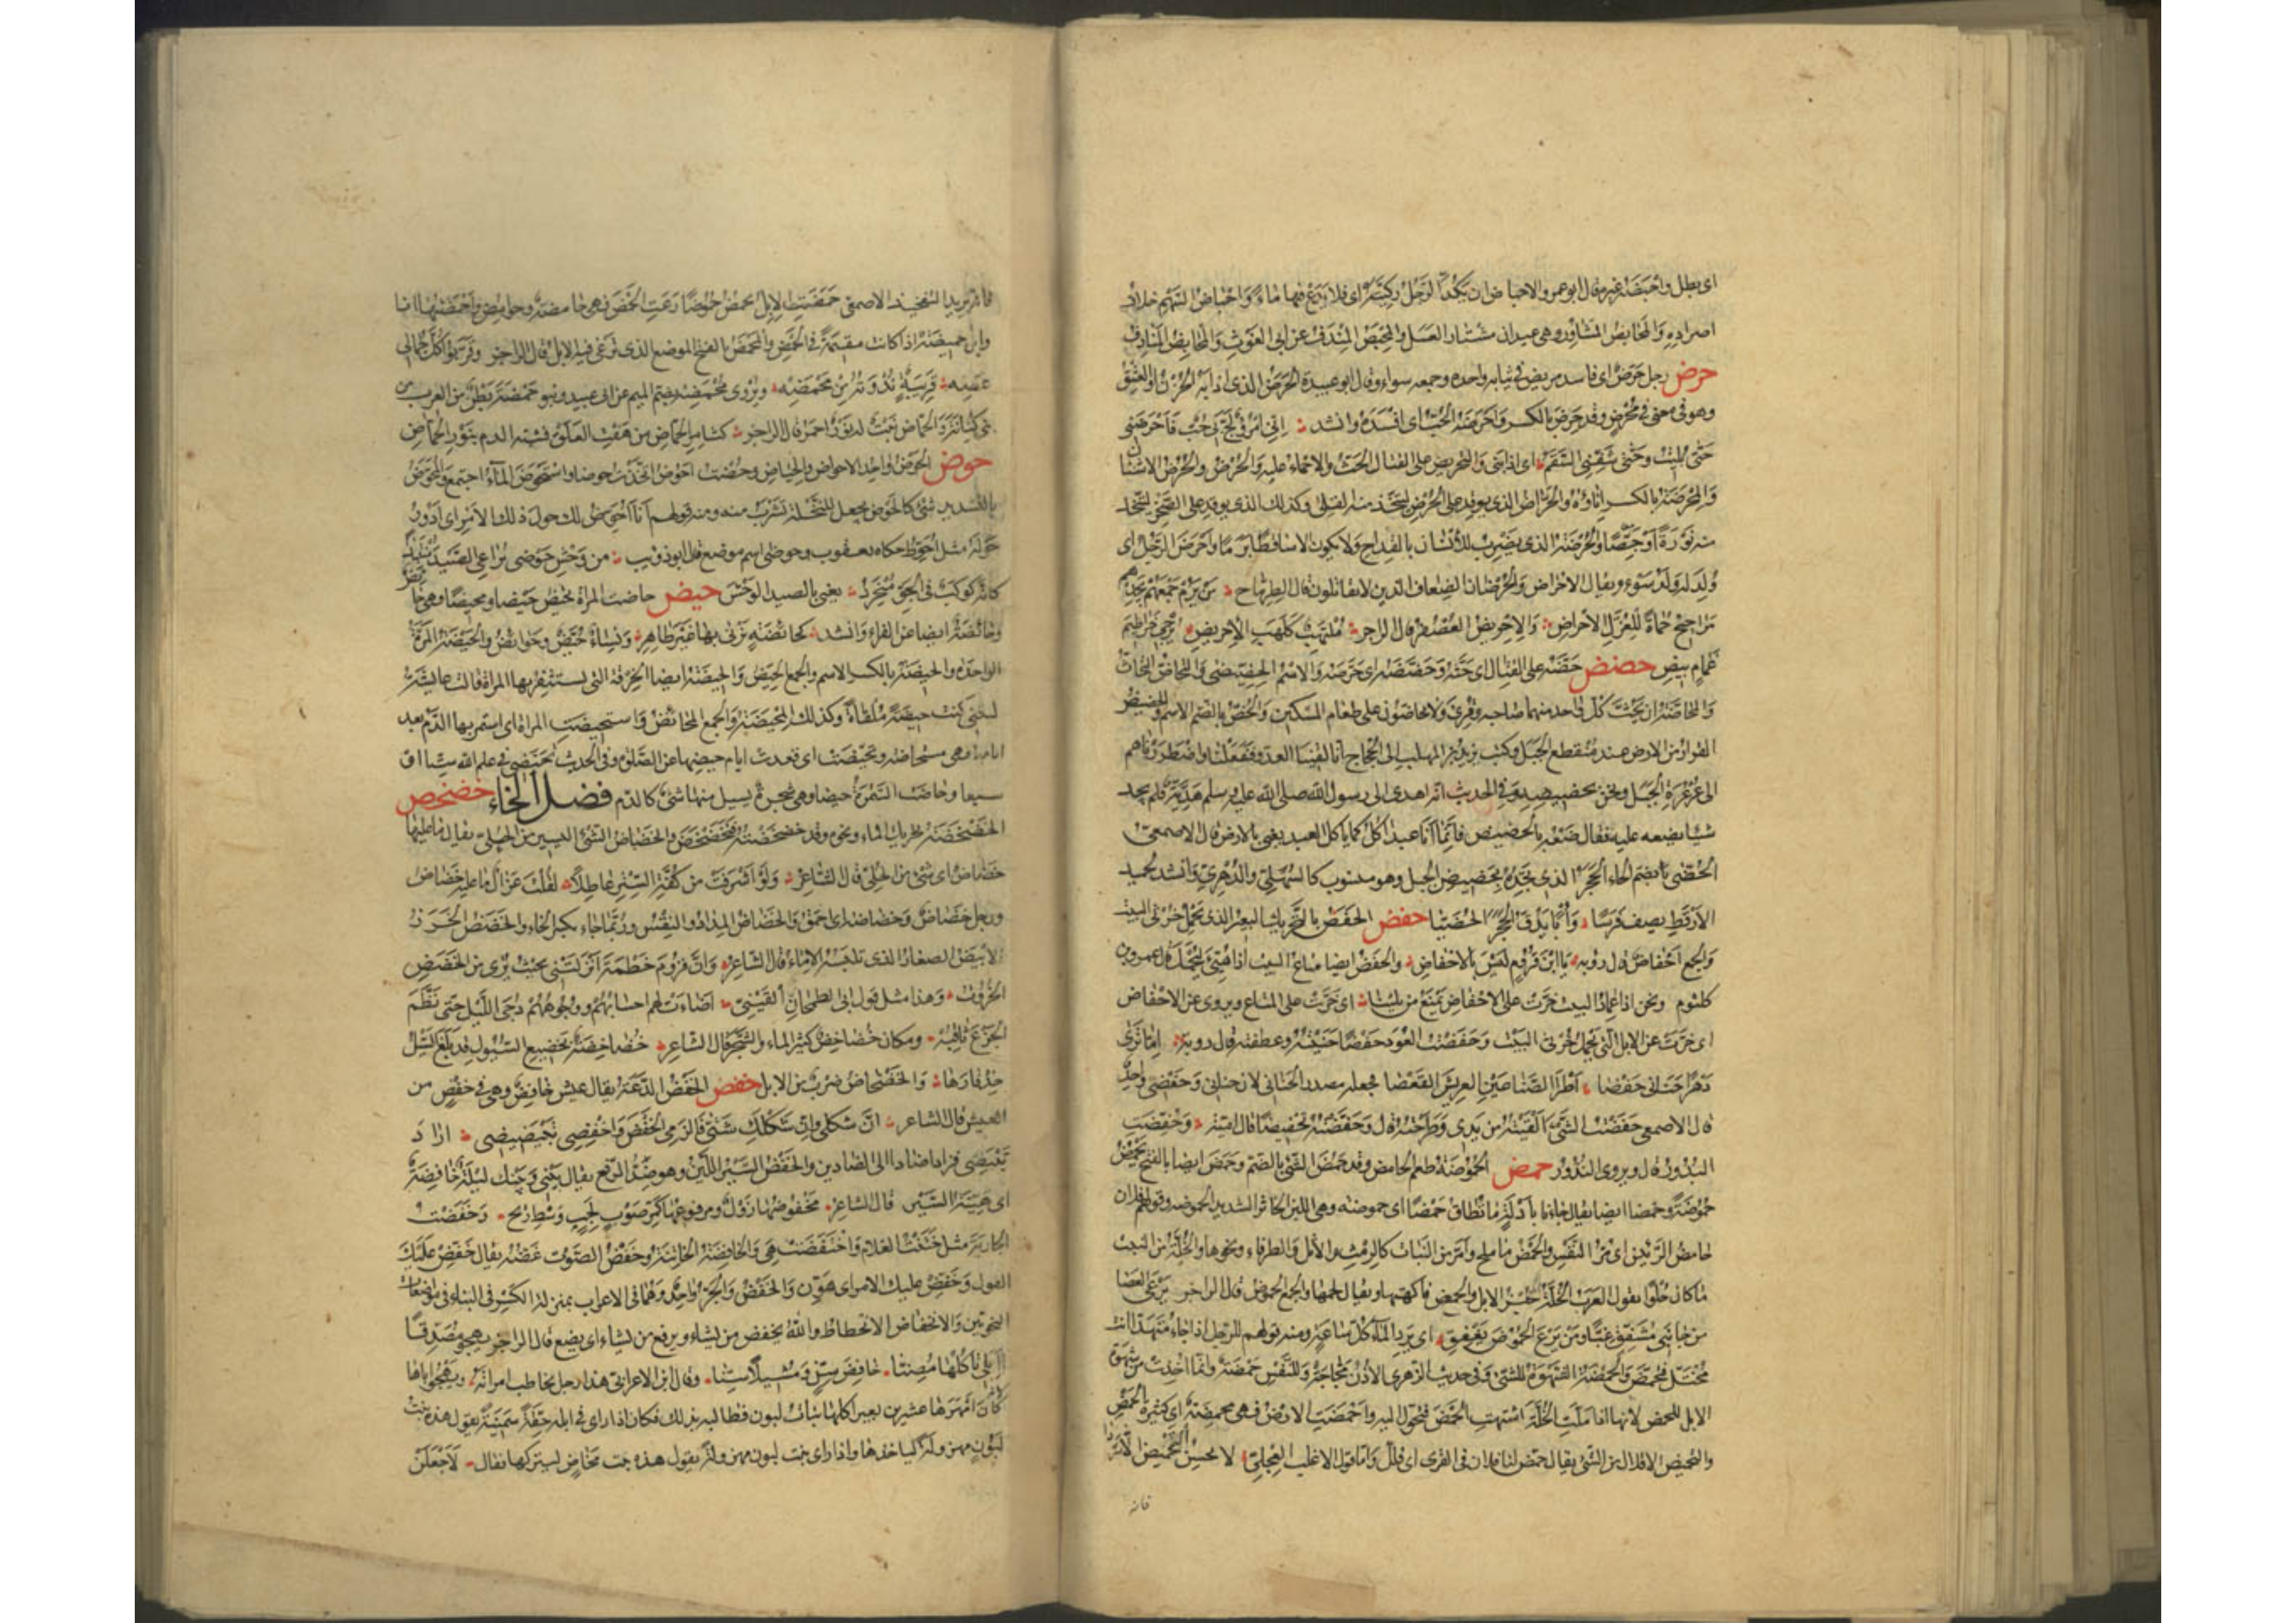 اى بطل واحبضه غيره قال ابو عمرو والاحباض ان يكد الرجل ركيته اى فلا يدع فيها ماء واحباض السهم خلاف
اصراده والمحابض المشاور وهى عيدان مشتار العسل والمحبض المندف عن ابى الغوث والمحابض المنادف
حرض رجل حرض اى فاسد مريض فى ثيابه واحده وجمعه سواء وقال ابو عبيدة الحرض الذى اذابه الحزن او العشق
وهو فى معنى محرض وقد حرض بالكسر واحرضه الحب اى افسده وانشد انى امرؤ لج بى حب فاحرضنى
حتى بليت وحتى شفنى السقم اى اذابنى والتحريض على القتال الحث والاحماء عليه والحرض والحرض الاشنان
والمحرضة بالكسر اناؤه والحراض الذى يوقد على الحرض ليتخذ منه القلى وكذلك الذى يوقد على الصخر ليتخذ
منه نورة او جصا والحرضة الذى يضرب للايسار بالقداح ولا يكون الا ساقطا برما واحرض الرجل اى
ولد له ولد سوء ويقال الاحراض والحرضان الضعاف الذين لا يقاتلون قال الطرماح من يرم جمعهم يجدهم
مراجيح حماة للعزل الاحراض والاحريض العصفر قال الراجز ملتهب كلهب الاحريض يزجى خراطيم
غمام بيض حضض حضه على القتال اى حثه وحضضه اى حرضه والاسم الحضيضى والتحاض التحاث
والمحاضة ان يحث كل واحد منهما صاحبه وقرئ ولا تحاضون على طعام المسكين والحض بالضم الاسم والحضيض
القرار من الارض عند منقطع الجبل وكتب يزيد بن المهلب الى الحجاج انا لقينا العدو ففعلنا واضطررناهم
الى عرعرة الجبل ونحن بحضيضه وفى الحديث انه اهدى الى رسول الله صلى الله عليه وسلم هدية فلم يجد
شيا يضعه عليه فقال ضعه بالحضيض فانما انا عبد اكل كما ياكل العبد يعنى بالارض قال الاصمعى
الحضى بضم الحاء الحجر الذى تجده بحضيض الجبل وهو منسوب كالسهلى والدهرى وانشد لحميد
الارقط يصف فرسا وأبا يدق الحجر الحضيا حفض الحفض بالتحريك البعير الذى يحمل خرثى البيت
والجمع احفاض قال رؤبة يا ابن قروم لسن بالاحفاض والحفض ايضا متاع البيت اذا هيئ ليحمل قال عمرو بن
كلثوم ونحن اذا عماد البيت خرت على الاحفاض نمنع من يلينا اى خرت على المتاع ويروى عن الاحفاض
اى خرت عن الابل التى تحمل خرثى البيت وحفضت العود حفضا حنيته وعطفته قال رؤبة اما ترى
دهرا حنانى حفضا اطر الصناعين العريش القعضا فجعله مصدر الحنانى لان حنانى وحفضنى واحد
قال الاصمعى حفضت الشئ القيته من يدى وطرحته قال وحفضته تحفيضا قال امية وحفضت
البدور قال ويروى النذور حمض الحموضة طعم الحامض وقد حمض الشئ بالضم وحمض ايضا بالفتح يحمض
حموضة وحمضا ايضا يقال جاءنا بادلة ما تطاق حمضا اى حموضة وهى اللبن الخاثر الشديد الحموضة وقولهم فلان
حامض الرئتين اى مر النفس والحمض ما ملح وامر من النبات كالرمث والاثل والطرفاء ونحوها والخلة من النبت
ما كان حلوا تقول العرب الخلة خبز الابل والحمض فاكهتها ويقال لحمها والجمع الحموض قال الراجز يرعى الغضا
من جانبى مشفق غبا ومن يرع الحموض يغفق اى يرد الماء كل ساعة ومنه قولهم للرجل اذا جاء متهددا انت
مختل فتحمض والحمضة الشهوة للشئ وفى حديث الزهرى الاذن مجاجة وللنفس حمضة وانما اخذت من شهوة
الابل للحمض لانها اذا ملت الخلة اشتهت الحمض فتحول اليه واحمضت الارض فهى محمضة اى كثيرة الحمض
والتحميض الاقلال من الشئ يقال حمض لنا فلان فى القرى اى قلل واما قول الاغلب العجلى لا يحسن التحميض الا سردا
فانه
فانه يريد التفخيذ الاصمعى حمضت الابل تحمض حموضا رعت الحمض فهى حامضة وحوامض واحمضتها انا
وابل حمضية اذا كانت مقيمة فى الحمض والمحمض بالفتح الموضع الذى ترعى فيه الابل قال الراجز وقربوا كل جمالى
عضه قريبة ندوته من محمضه ويروى محمضه بضم الميم عن ابى عبيد وبنو حمضة بطن من العرب من
بنى كنانة والحماض نبت له نور احمر قال الراجز كثامر الحماض من هفت العلق فشبه الدم بنور الحماض
حوض الحوض واحد الاحواض والحياض وحضت احوض اتخذت حوضا واستحوض الماء اجتمع والمحوض
بالتشديد شئ كالحوض يجعل للنخلة تشرب منه ومنه قولهم انا احوض لك حول ذلك الامر اى ادور
حوله مثل احوط حكاه يعقوب وحوضى اسم موضع قال ابو ذؤيب من وحش حوضى يراعى الصيد منتبذا
كانه كوكب فى الجو منجرد يعنى بالصيد الوحش حيض حاضت المراة تحيض حيضا ومحيضا وهى حائض
وحائضة ايضا عن الفراء وانشد كحائضة يزنى بها غير طاهر ونساء حيض وحوائض والحيضة المرة
الواحدة والحيضة بالكسر الاسم والجمع الحيض والحيضة ايضا الخرقة التى تستثفر بها المراة قالت عائشة
ليتنى كنت حيضة ملقاة وكذلك المحيضة والجمع المحائض واستحيضت المراة اى استمر بها الدم بعد
ايامها وهى مستحاضة وتحيضت اى قعدت ايام حيضها عن الصلوة وفى الحديث تحيضى فى علم الله ستا او
سبعا وحاضت السمرة حيضا وهى شجرة يسيل منها شئ كالدم فصل الخاء خضخض
الخضخضة تحريك الماء ونحوه وقد خضخضته فتخضخض والخضاض الشئ اليسير من الحلى يقال ما عليها
خضاض اى شئ من الحلى قال الشاعر ولو اشرفت من كفة الستر عاطلا لقلت غزال ما عليه خضاض
ورجل خضاض وخضاضة اى احمق والخضاض المداد والنقس وربما جاء بكسر الخاء والخضض الخرز
الابيض الصغار الذى تلبسه الاماء قال الشاعر وان قروم خطمة انزلتنى بحيث يرى من الخضض
الخروت وهذا مثل قول ابى الطمحان القينى اضاءت لهم احسابهم ووجوههم دجى الليل حتى نظم
الجزع ثاقبه ومكان خضاخض كثير الماء والشجر قال الشاعر خضاخضة بخضيع السيول قد بلغ السيل
حذفارها والخضخاض ضرب من الابل خفض الخفض الدعة يقال عيش خافض وهم فى خفض من
العيش قال الشاعر ان شكلى وان شكلك شتى فالزمى الخفض واخفضى تبيضضى اراد
تبيضى فزاد ضادا الى الضادين والخفض السير اللين وهو ضد الرفع يقال بينى وبينك ليلة خافضة
اى هينة السير قال الشاعر مخفوضها زول ومرفوعها كمر صوب لجب وسط ريح وخفضت
الجارية مثل ختنت الغلام واختفضت هى والخافضة الخاتنة وخفض الصوت غضه يقال خفض عليك
القول وخفض عليك الامر اى هون والخفض والجر واحد وهما فى الاعراب بمنزلة الكسر فى البناء فى مواضعات
النحويين والانخفاض الانحطاط والله يخفض من يشاء ويرفع من يشاء اى يضع قال الراجز يهجو مصدقا
اابلى تاكلها مصنا خافض سن ومشيلا سنا وقال ابن الاعرابى هذا رجل يخاطب امراته ويهجو اباها
لانه كان امهرها عشرين بعيرا كلها بنات لبون فطالبه بذلك فكان اذا راى فى ابله حقة سمينة يقول هذه بنت
لبون مهزولة لياخذها واذا راى بنت لبون مهزولة يقول هذه بنت مخاض ليتركها فقال لاجعلن